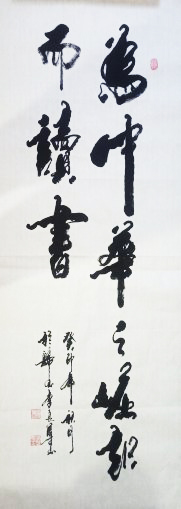 為中華之崛起
而讀書
癸卯年秋月